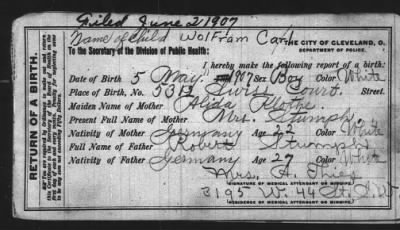 Filed June 2 1907
Name of Child Wolfram Carl
THE CITY OF CLEVELAND, O.
DEPARTMENT OF POLICE.
To the Secretary of the Division of Public Health:
I hereby make the following report of a birth:
Date of Birth 5 May 1907 Sex Boy Color White
Place of Birth, No. 5312 Swiss Court. Street.
Maiden Name of Mother Alida Klothe
Present Full Name of Mother Mrs. Stumph
Nativity of Mother Germany Age 22 Color White
Full Name of Father Robert Stumph
Nativity of Father Germany Age 27 Color White
Mrs. A. Thieg
SIGNATURE OF MEDICAL ATTENDANT OR MIDWIFE
3195 W. 44 St. S.W.
RESIDENCE OF MEDICAL ATTENDANT OR MIDWIFE
RETURN OF A BIRTH.